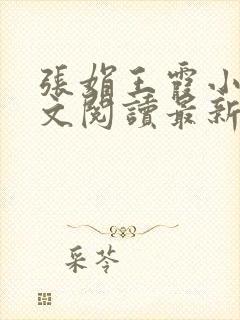 張娟王霞小
文閱讀最新
采苓